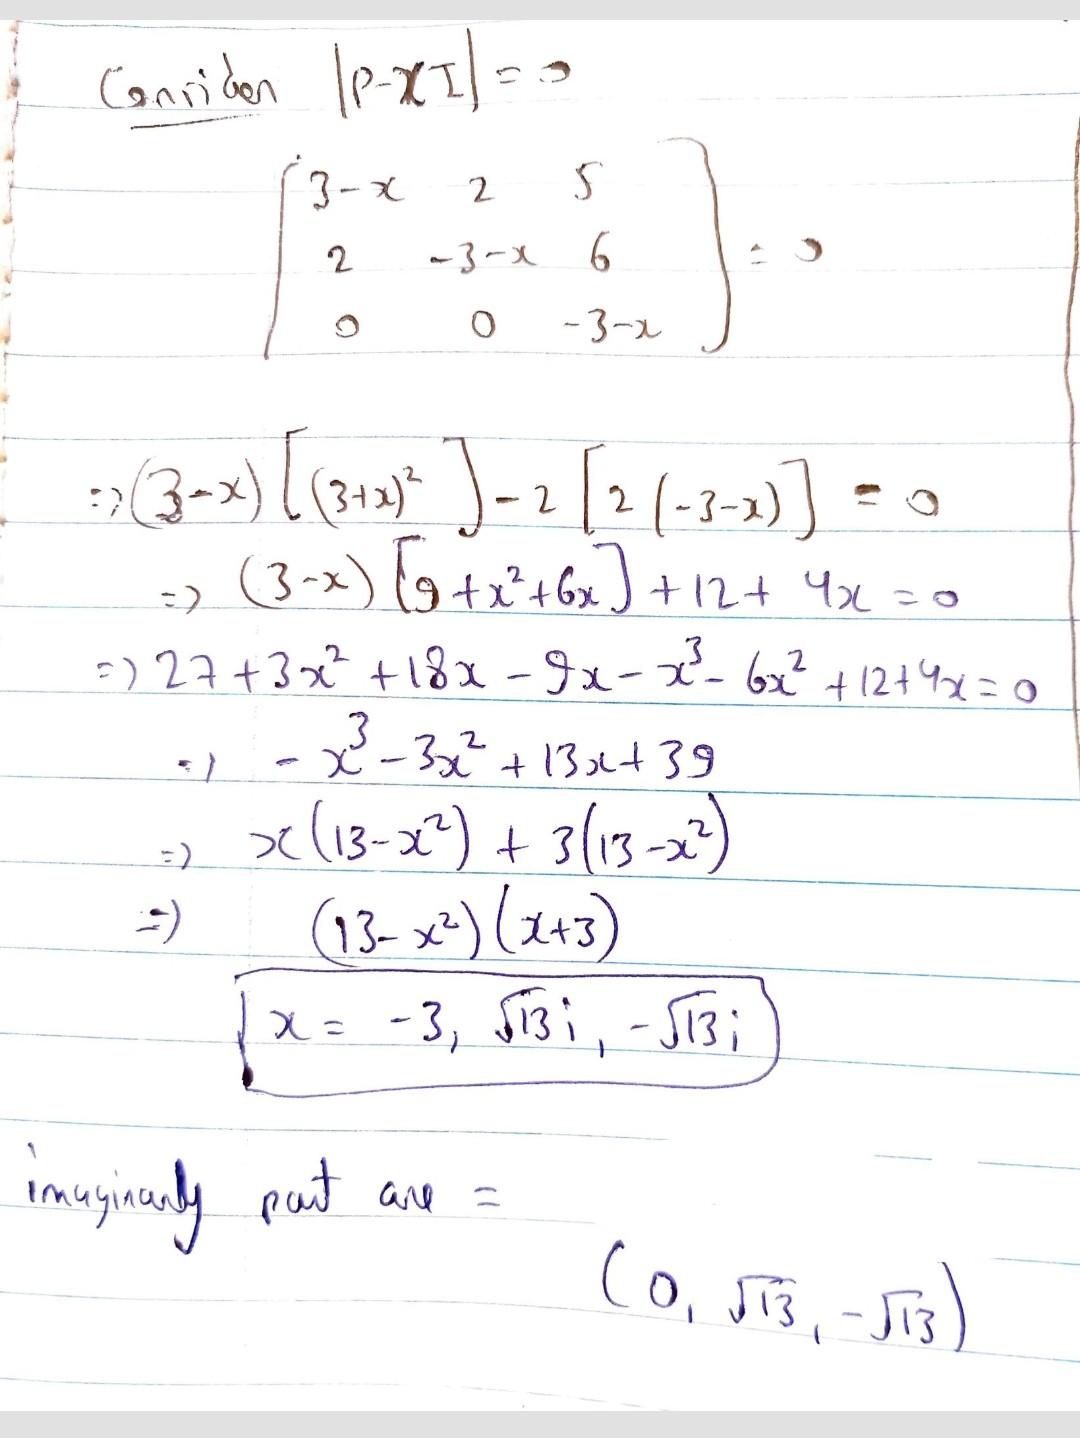 Consider |P-XI| = 0
3-x 2 5
2 -3-x 6 = 0
0 0 -3-x
=> (3-x) [(3+x)² ] - 2 [2 (-3-x)] = 0
=> (3-x) [9+x²+6x] + 12 + 4x = 0
=> 27 + 3x² + 18x - 9x - x³ - 6x² + 12 + 4x = 0
=> - x³ - 3x² + 13x + 39
=> x(13-x²) + 3(13-x²)
=> (13-x²) (x+3)
x = -3, √13 i, -√13 i
imaginary part are =
(0, √13, -√13)